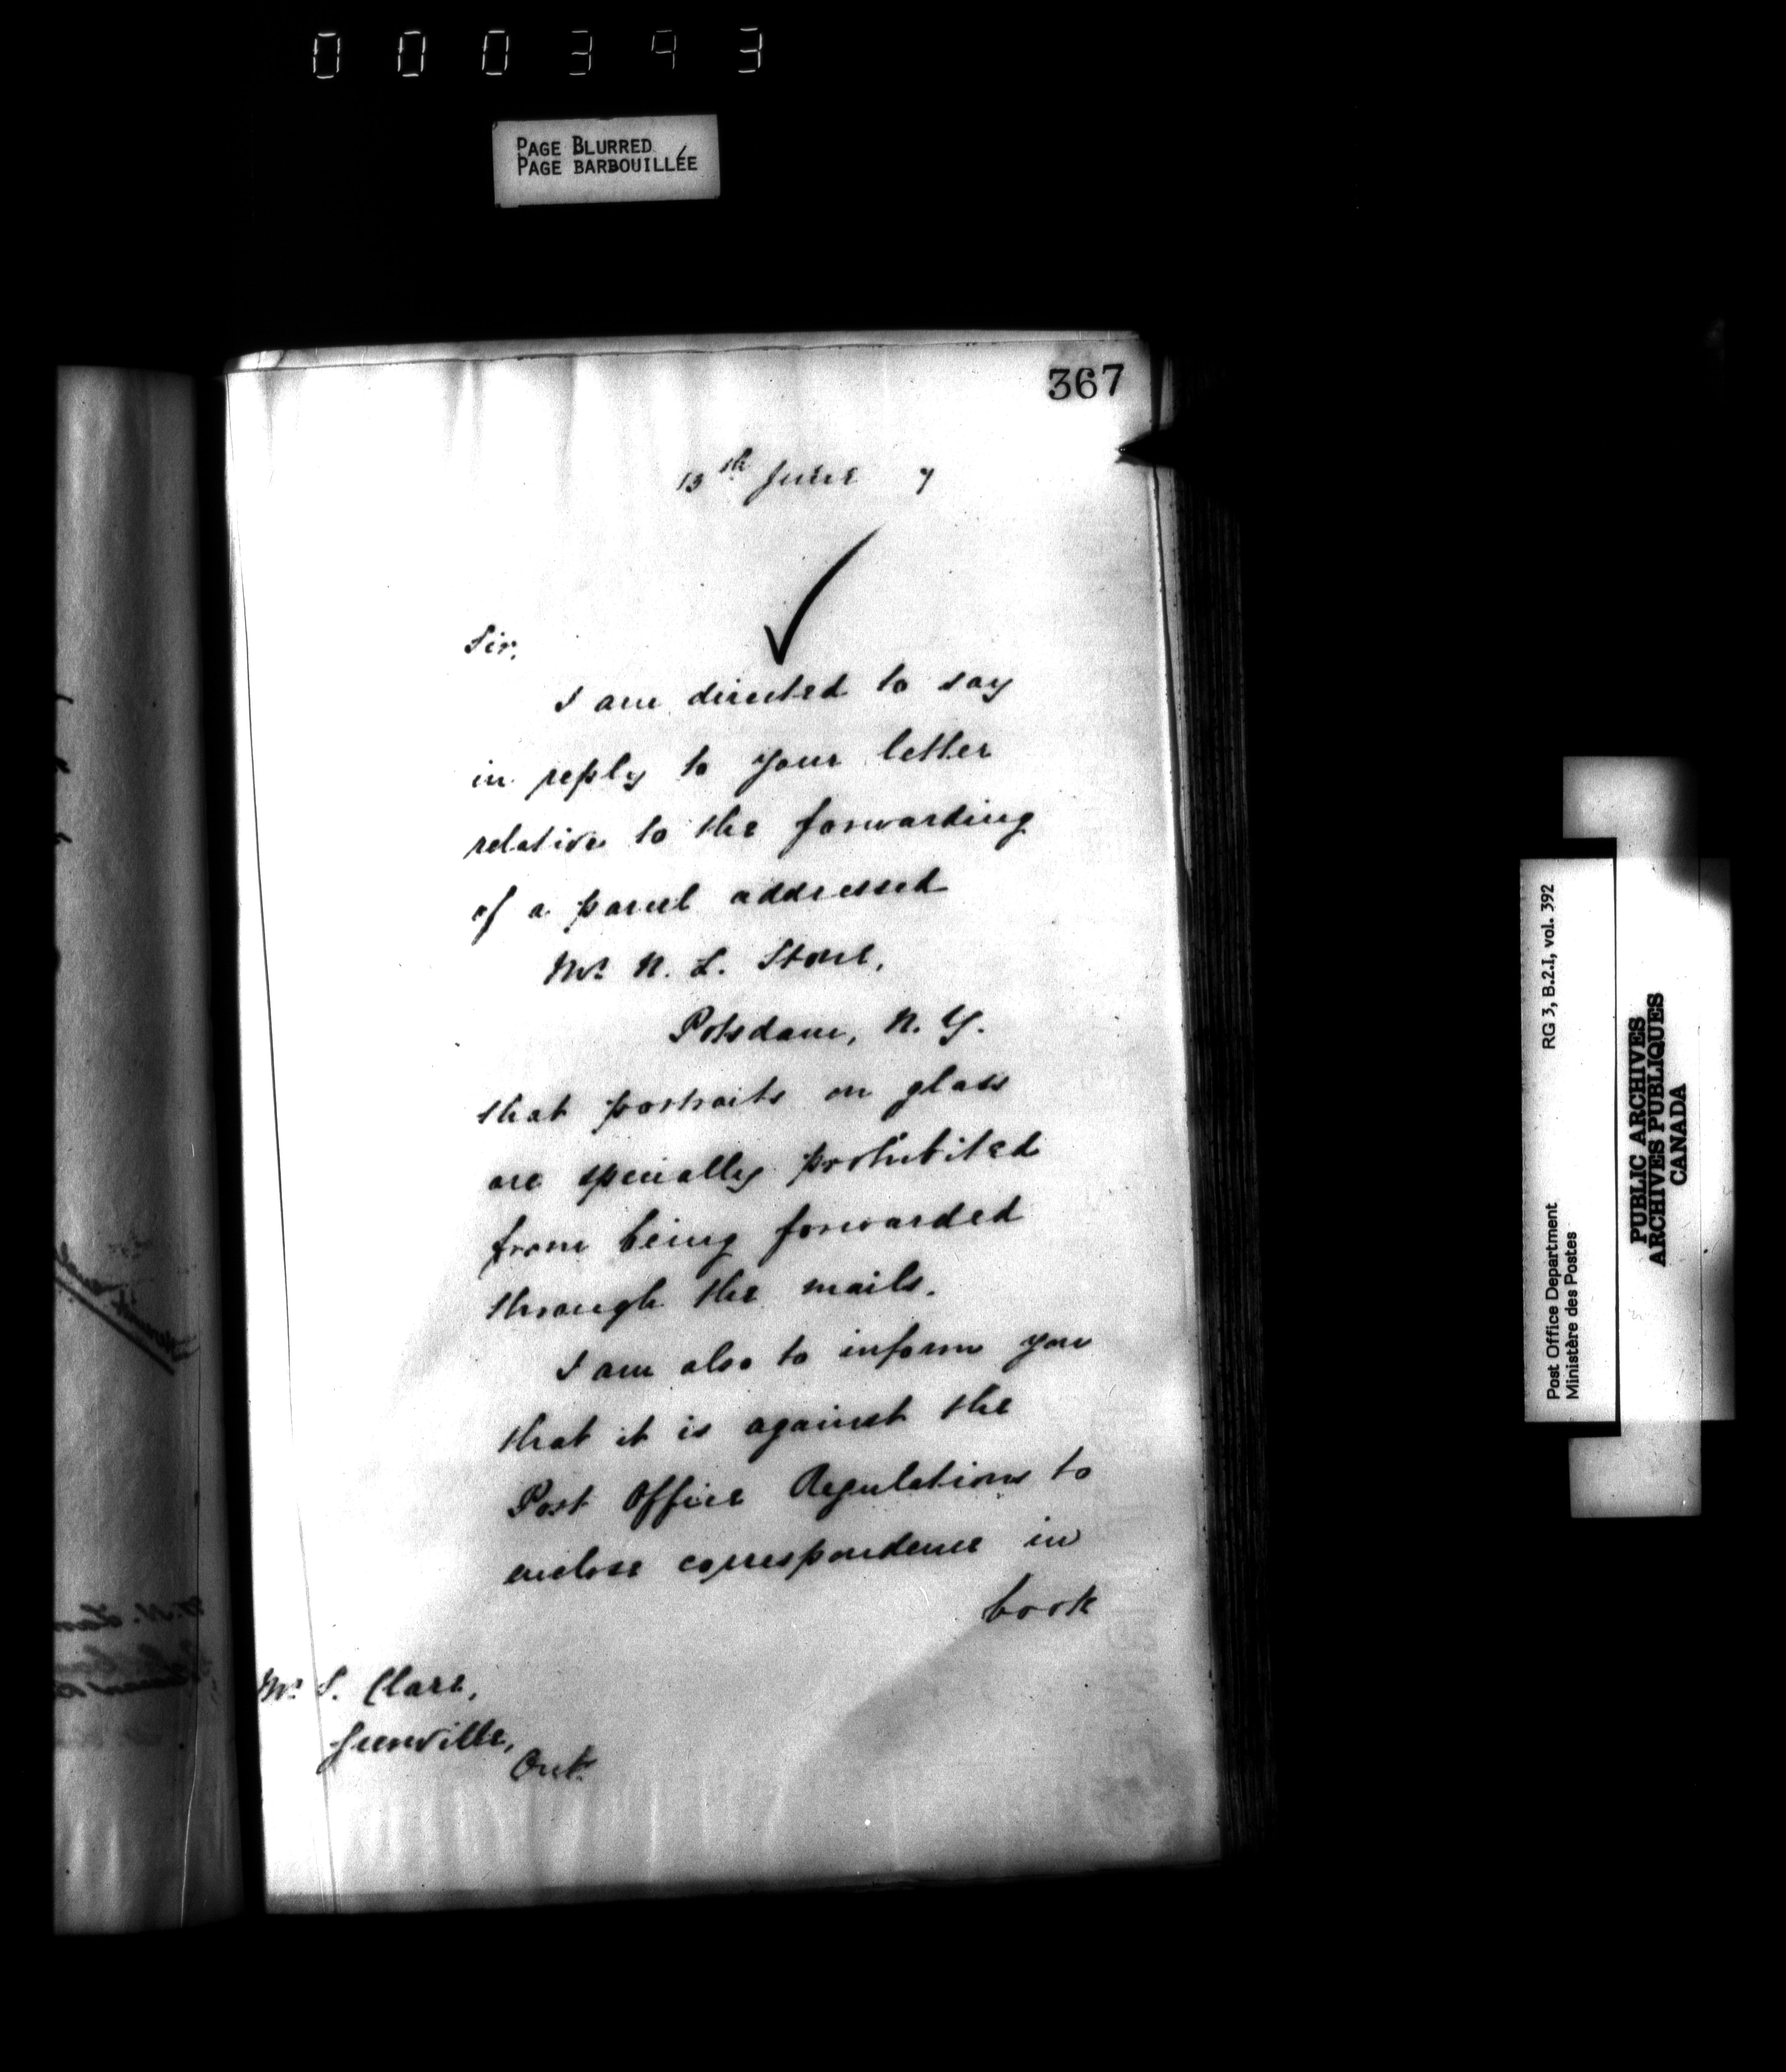 000343
PAGE BLURRED
PAGE BARBOUILLÉE
367
13th June 7
Sir,
I am directed to say
in reply to your letter
relative to the forwarding
of a parcel addressed
Mr. N. L. Stone,
Potsdam, N. Y.
that portraits on glass
are specially prohibited
from being forwarded
through the mails.
I am also to inform you
that it is against the
Post Office Regulations to
enclose correspondence in
book
Mr. S.
Ont.
Post Office Department RG 3, B.2.I, vol. 392
Ministère des Postes
PUBLIC ARCHIVES
ARCHIVES PUBLIQUES
CANADA